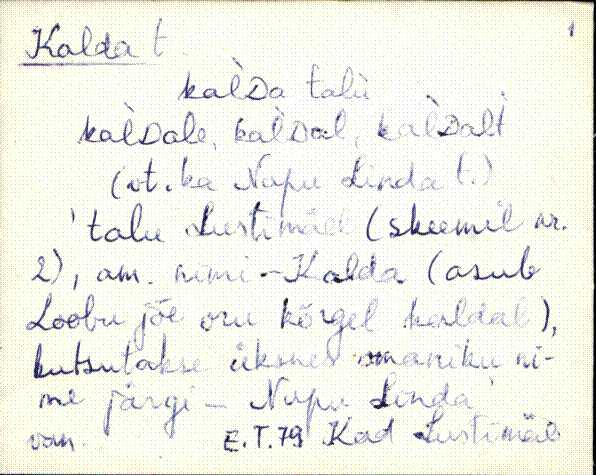 1
Kalda t.
kàlDa talù
kàlDale, kàlDal, kàlDalt
(vt. ka Nupu Linda t.)
'talu Lustimäel (skeemil nr.
2), am. nimi – Kalda (asub
Loobu jõe oru kõrgel kaldal),
kutsutakse üksnes omaniku ni-
me järgi – Nupu Linda'
van. E.T.79 Kad Lustimäe